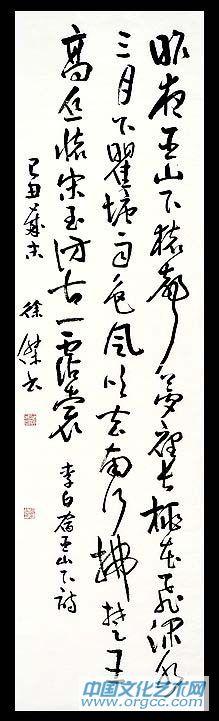 昨夜巫山下猿聲夢裡長桃花飛渌水
三月下瞿塘雨色風吹去南行拂楚王
高丘懷宋玉訪古一霑裳
李白宿巫山下詩
己丑歲末 徐傑书
中国文化艺术网
www.orgcc.com